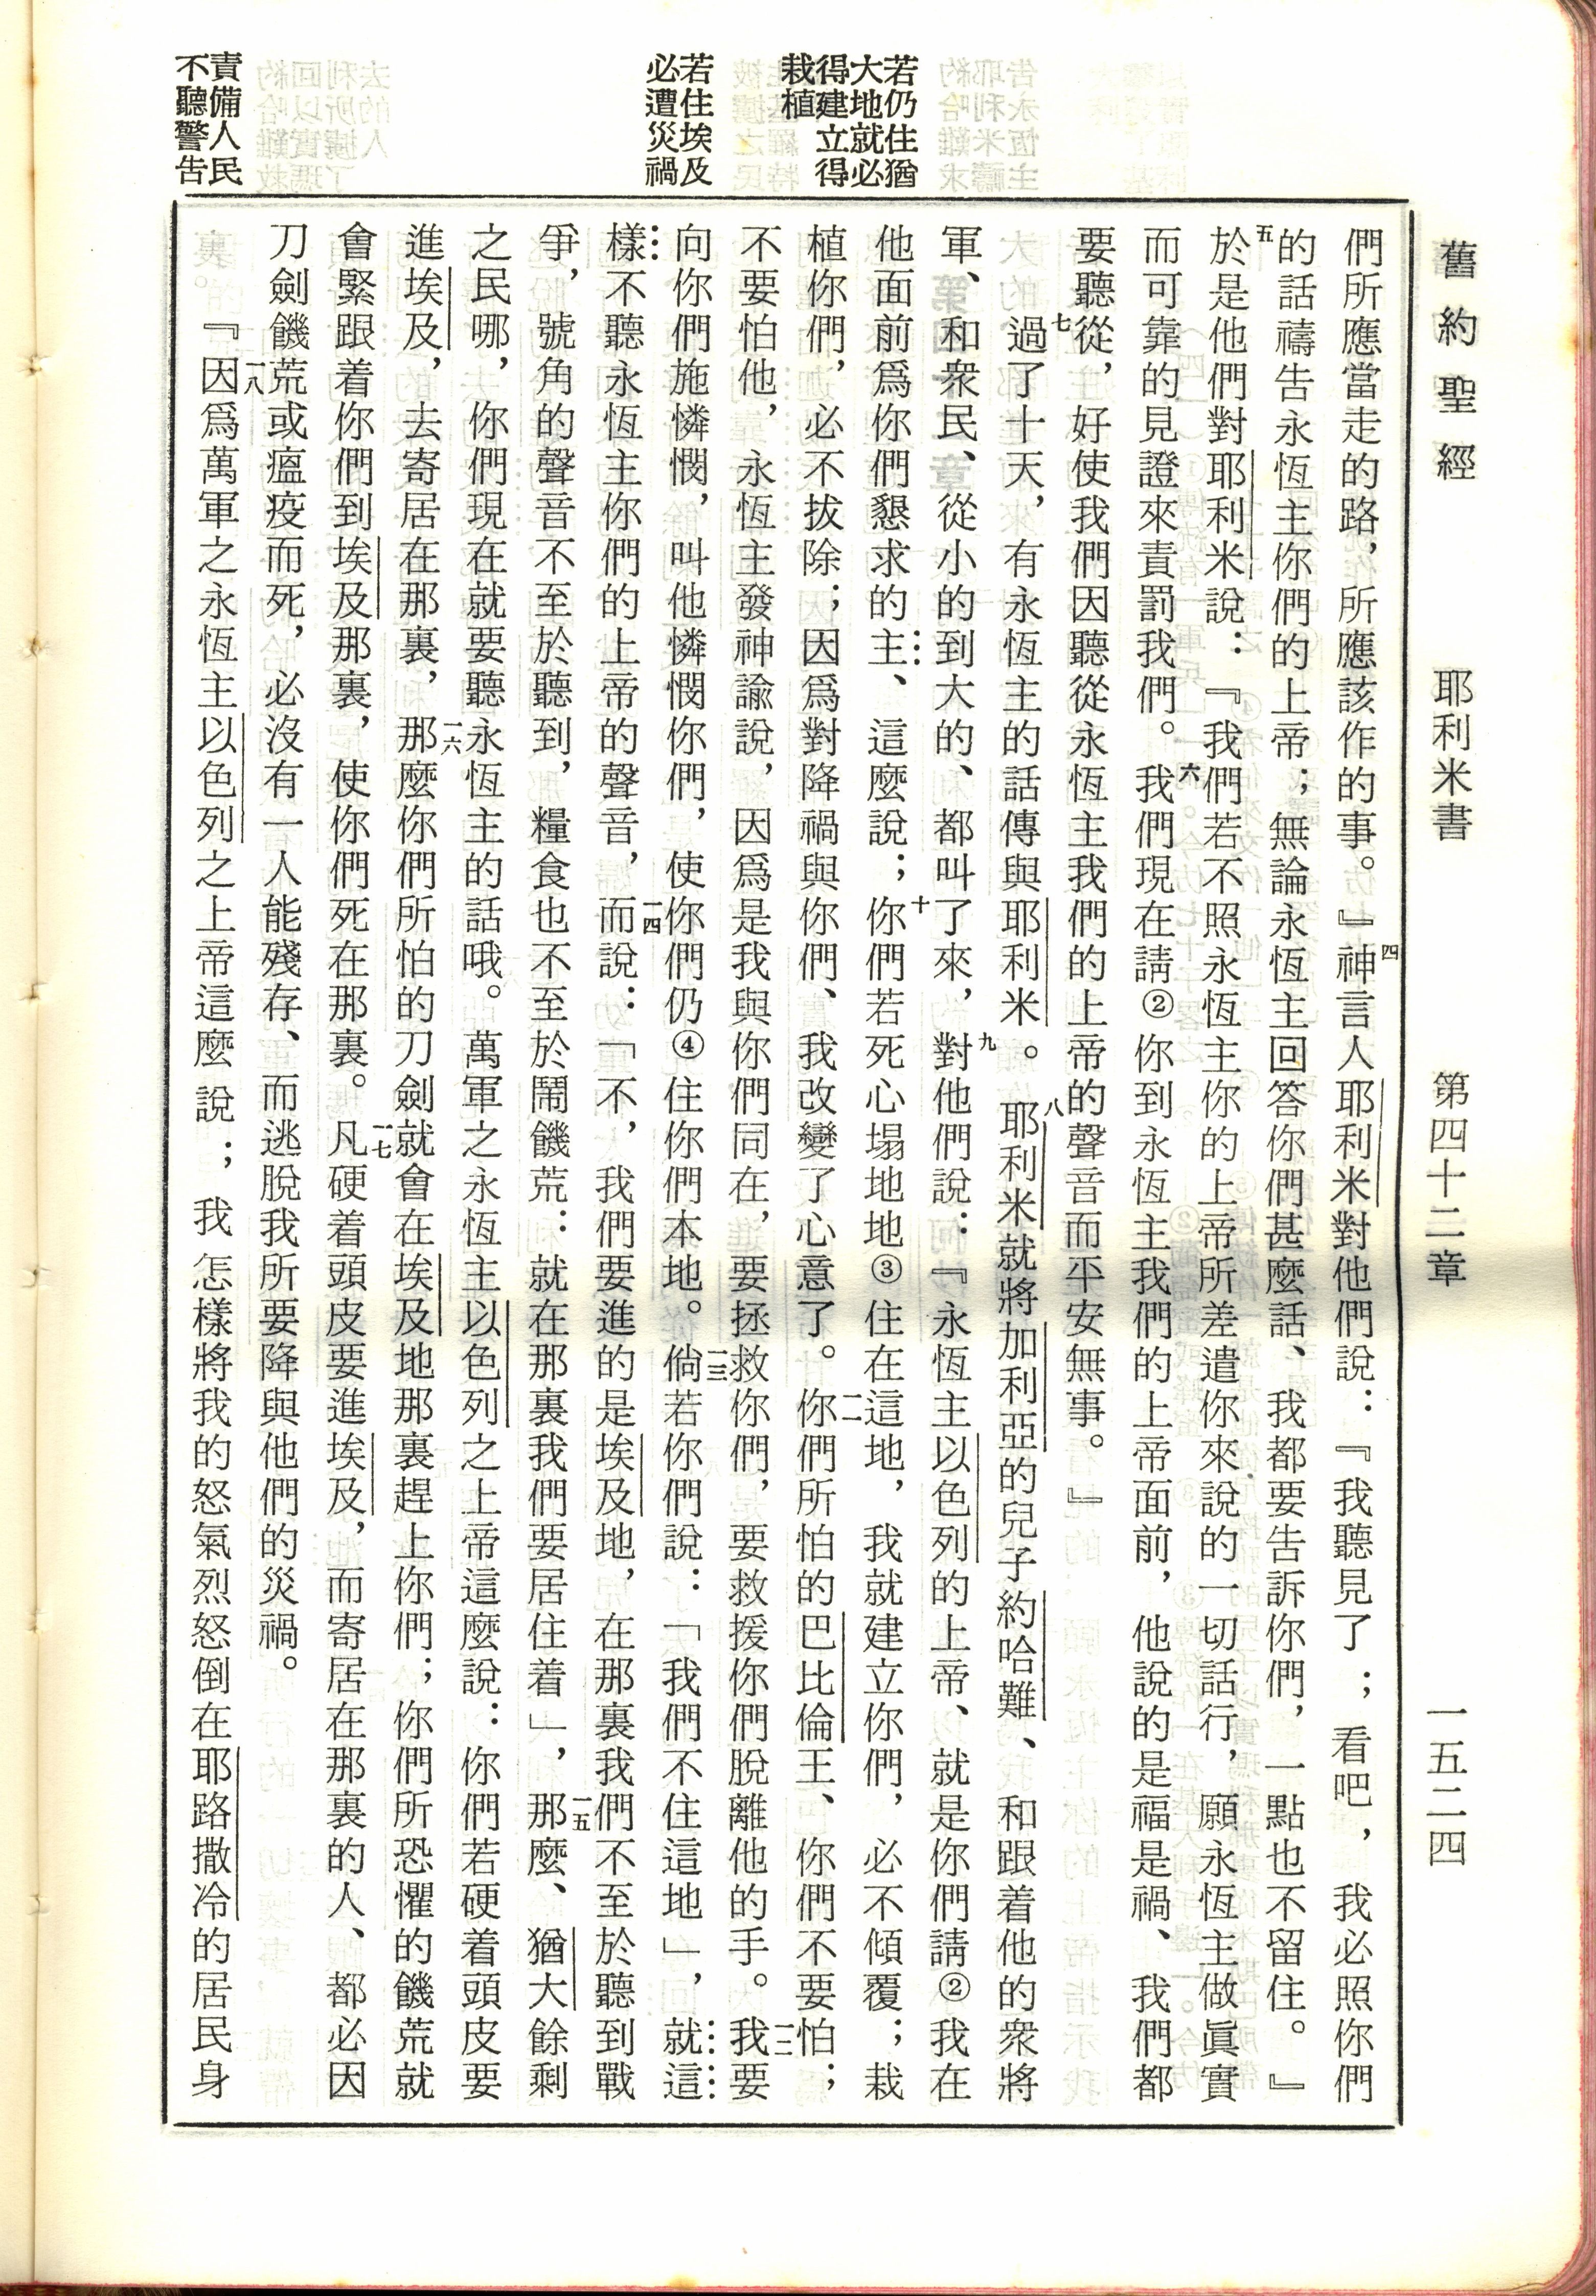 舊約聖經 耶利米書 第四十二章 一五二四
若仍住猶
大地就必
得建立得
栽植
若住埃及
必遭災禍
責備人民
不聽警告
們所應當走的路，所應該作的事。』四神言人耶利米對他們說：『我聽見了；看吧，我必照你們
的話禱告永恆主你們的上帝；無論永恆主回答你們甚麼話、我都要告訴你們，一點也不留住。』
五於是他們對耶利米說：『我們若不照永恆主你的上帝所差遣你來說的一切話行，願永恆主做眞實
而可靠的見證來責罰我們。六我們現在請②你到永恆主我們的上帝面前，他說的是福是禍、我們都
要聽從，好使我們因聽從永恆主我們的上帝的聲音而平安無事。』
七過了十天，有永恆主的話傳與耶利米。八耶利米就將加利亞的兒子約哈難、和跟着他的衆將
軍、和衆民、從小的到大的、都叫了來，九對他們說：『永恆主以色列的上帝、就是你們請②我在
他面前爲你們懇求的主、這麼說；十你們若死心塌地地③住在這地，我就建立你們，必不傾覆；栽
植你們，必不拔除；因爲對降禍與你們、我改變了心意了。一一你們所怕的巴比倫王、你們不要怕；
不要怕他，永恆主發神諭說，因爲是我與你們同在，要拯救你們，要救援你們脫離他的手。一二我要
向你們施憐憫，叫他憐憫你們，使你們仍④住你們本地。一三倘若你們說：「我們不住這地」，就這
樣不聽永恆主你們的上帝的聲音，一四而說：「不，我們要進的是埃及地，在那裏我們不至於聽到戰
爭，號角的聲音不至於聽到，糧食也不至於鬧饑荒：就在那裏我們要居住着」，一五那麼、猶大餘剩
之民哪，你們現在就要聽永恆主的話哦。萬軍之永恆主以色列之上帝這麼說：你們若硬着頭皮要
進埃及，去寄居在那裏，一六那麼你們所怕的刀劍就會在埃及地那裏趕上你們；你們所恐懼的饑荒就
會緊跟着你們到埃及那裏，使你們死在那裏。一七凡硬着頭皮要進埃及，而寄居在那裏的人、都必因
刀劍饑荒或瘟疫而死，必沒有一人能殘存、而逃脫我所要降與他們的災禍。
一八『因爲萬軍之永恆主以色列之上帝這麼說；我怎樣將我的怒氣烈怒倒在耶路撒冷的居民身